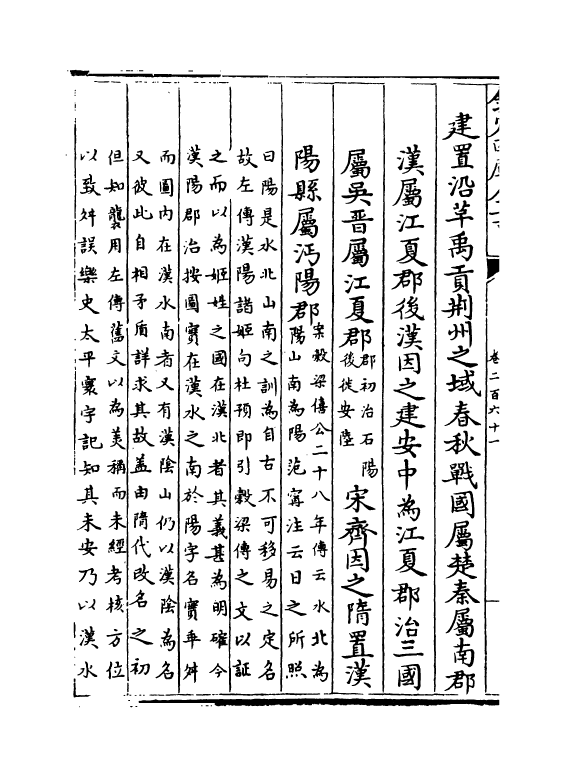 卷二百六十一
建置沿革禹貢荆州之域春秋戰國屬楚秦屬南郡
漢屬江夏郡後漢因之建安中為江夏郡治三國
屬吳晉屬江夏郡
郡初治石陽
後徙安陸
宋齊因之隋置漢
陽縣屬沔陽郡
案穀梁僖公二十八年傳云水北為
陽山南為陽范甯注云日之所照
曰陽是水北山南之訓為自古不可移易之定名
故左傳漢陽諸姬句杜預即引穀梁傳之文以証
之而以為姬姓之國在漢北者其義甚為明確今
漢陽郡治按圖實在漢水之南於陽字名實乖舛
而圖内在漢水南者又有漢陰山仍以漢陰為名
又彼此自相矛盾詳求其故盖由隋代改名之初
但知襲用左傳舊文以為美稱而未經考核方位
以致舛誤樂史太平寰宇記知其未安乃以漢水